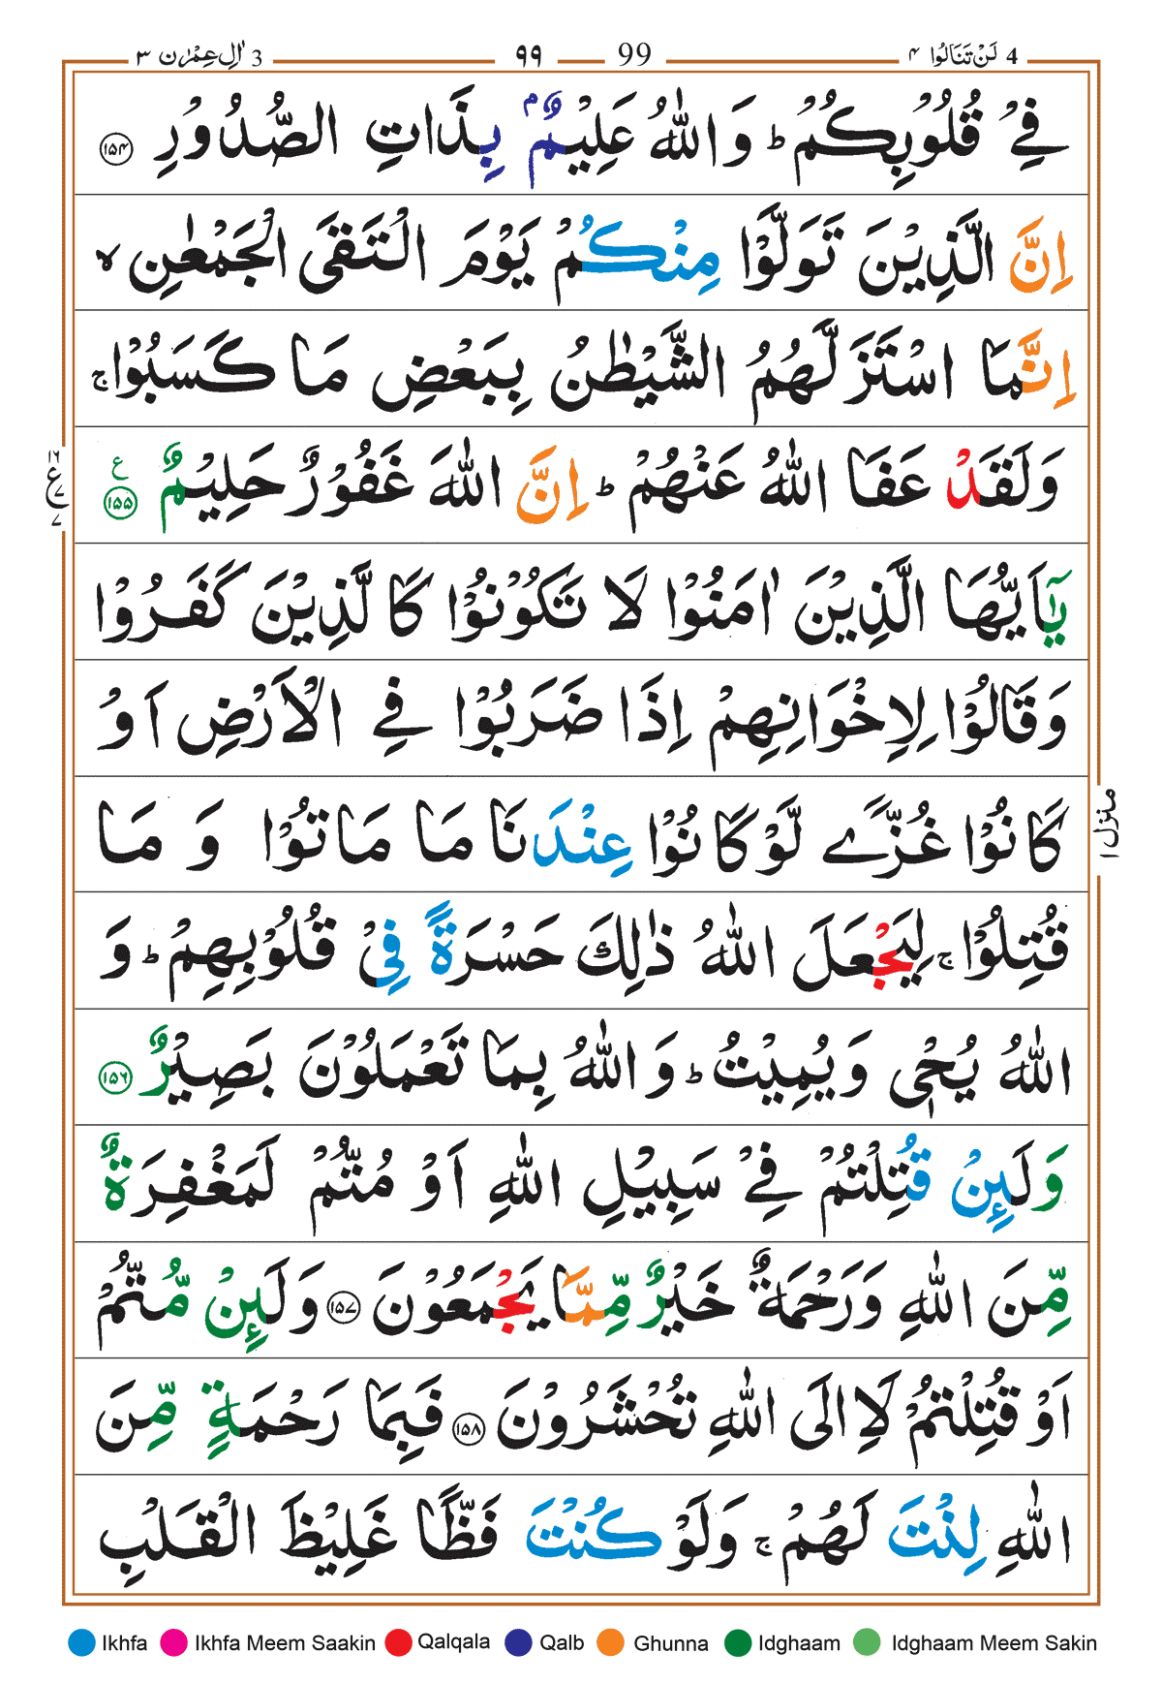 4 لَنْ تَنَالُوا ۴ 99 ۹۹ 3 اٰلِ عِمْرٰن ۳
فِیْ قُلُوْبِكُمْ ؕ وَاللّٰهُ عَلِیْمٌۢ بِذَاتِ الصُّدُوْرِ ﴿۱۵۴﴾
اِنَّ الَّذِیْنَ تَوَلَّوْا مِنْكُمْ یَوْمَ الْتَقَی الْجَمْعٰنِ ۙ
اِنَّمَا اسْتَزَلَّهُمُ الشَّیْطٰنُ بِبَعْضِ مَا كَسَبُوْا ۚ
وَلَقَدْ عَفَا اللّٰهُ عَنْهُمْ ؕ اِنَّ اللّٰهَ غَفُوْرٌ حَلِیْمٌ ﴿۱۵۵﴾ ع
۱۶ ع ۷ ۷
یٰۤاَیُّهَا الَّذِیْنَ اٰمَنُوْا لَا تَكُوْنُوْا كَالَّذِیْنَ كَفَرُوْا
وَقَالُوْا لِاِخْوَانِهِمْ اِذَا ضَرَبُوْا فِی الْاَرْضِ اَوْ
كَانُوْا غُزًّی لَّوْ كَانُوْا عِنْدَنَا مَا مَاتُوْا وَ مَا
منزل ۱
قُتِلُوْا ۚ لِیَجْعَلَ اللّٰهُ ذٰلِكَ حَسْرَةً فِیْ قُلُوْبِهِمْ ؕ وَ
اللّٰهُ یُحْیٖ وَیُمِیْتُ ؕ وَاللّٰهُ بِمَا تَعْمَلُوْنَ بَصِیْرٌ ﴿۱۵۶﴾
وَلَىِٕنْ قُتِلْتُمْ فِیْ سَبِیْلِ اللّٰهِ اَوْ مُتُّمْ لَمَغْفِرَةٌ
مِّنَ اللّٰهِ وَرَحْمَةٌ خَیْرٌ مِّمَّا یَجْمَعُوْنَ ﴿۱۵۷﴾ وَلَىِٕنْ مُّتُّمْ
اَوْ قُتِلْتُمْ لَاِالَی اللّٰهِ تُحْشَرُوْنَ ﴿۱۵۸﴾ فَبِمَا رَحْمَةٍ مِّنَ
اللّٰهِ لِنْتَ لَهُمْ ۚ وَلَوْ كُنْتَ فَظًّا غَلِیْظَ الْقَلْبِ
Ikhfa Ikhfa Meem Saakin Qalqala Qalb Ghunna Idghaam Idghaam Meem Sakin